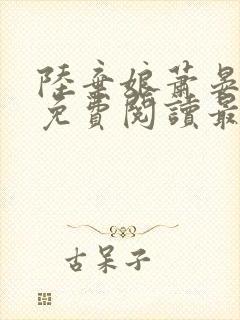 陸棄娘蕭晏
免費閱讀最
古呆子